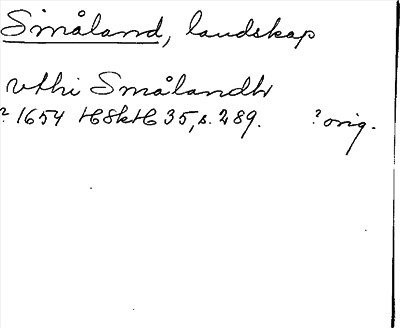 Småland, landskap
vthi Smålandh
? 1654 HSkH 35, s. 289. ? orig.